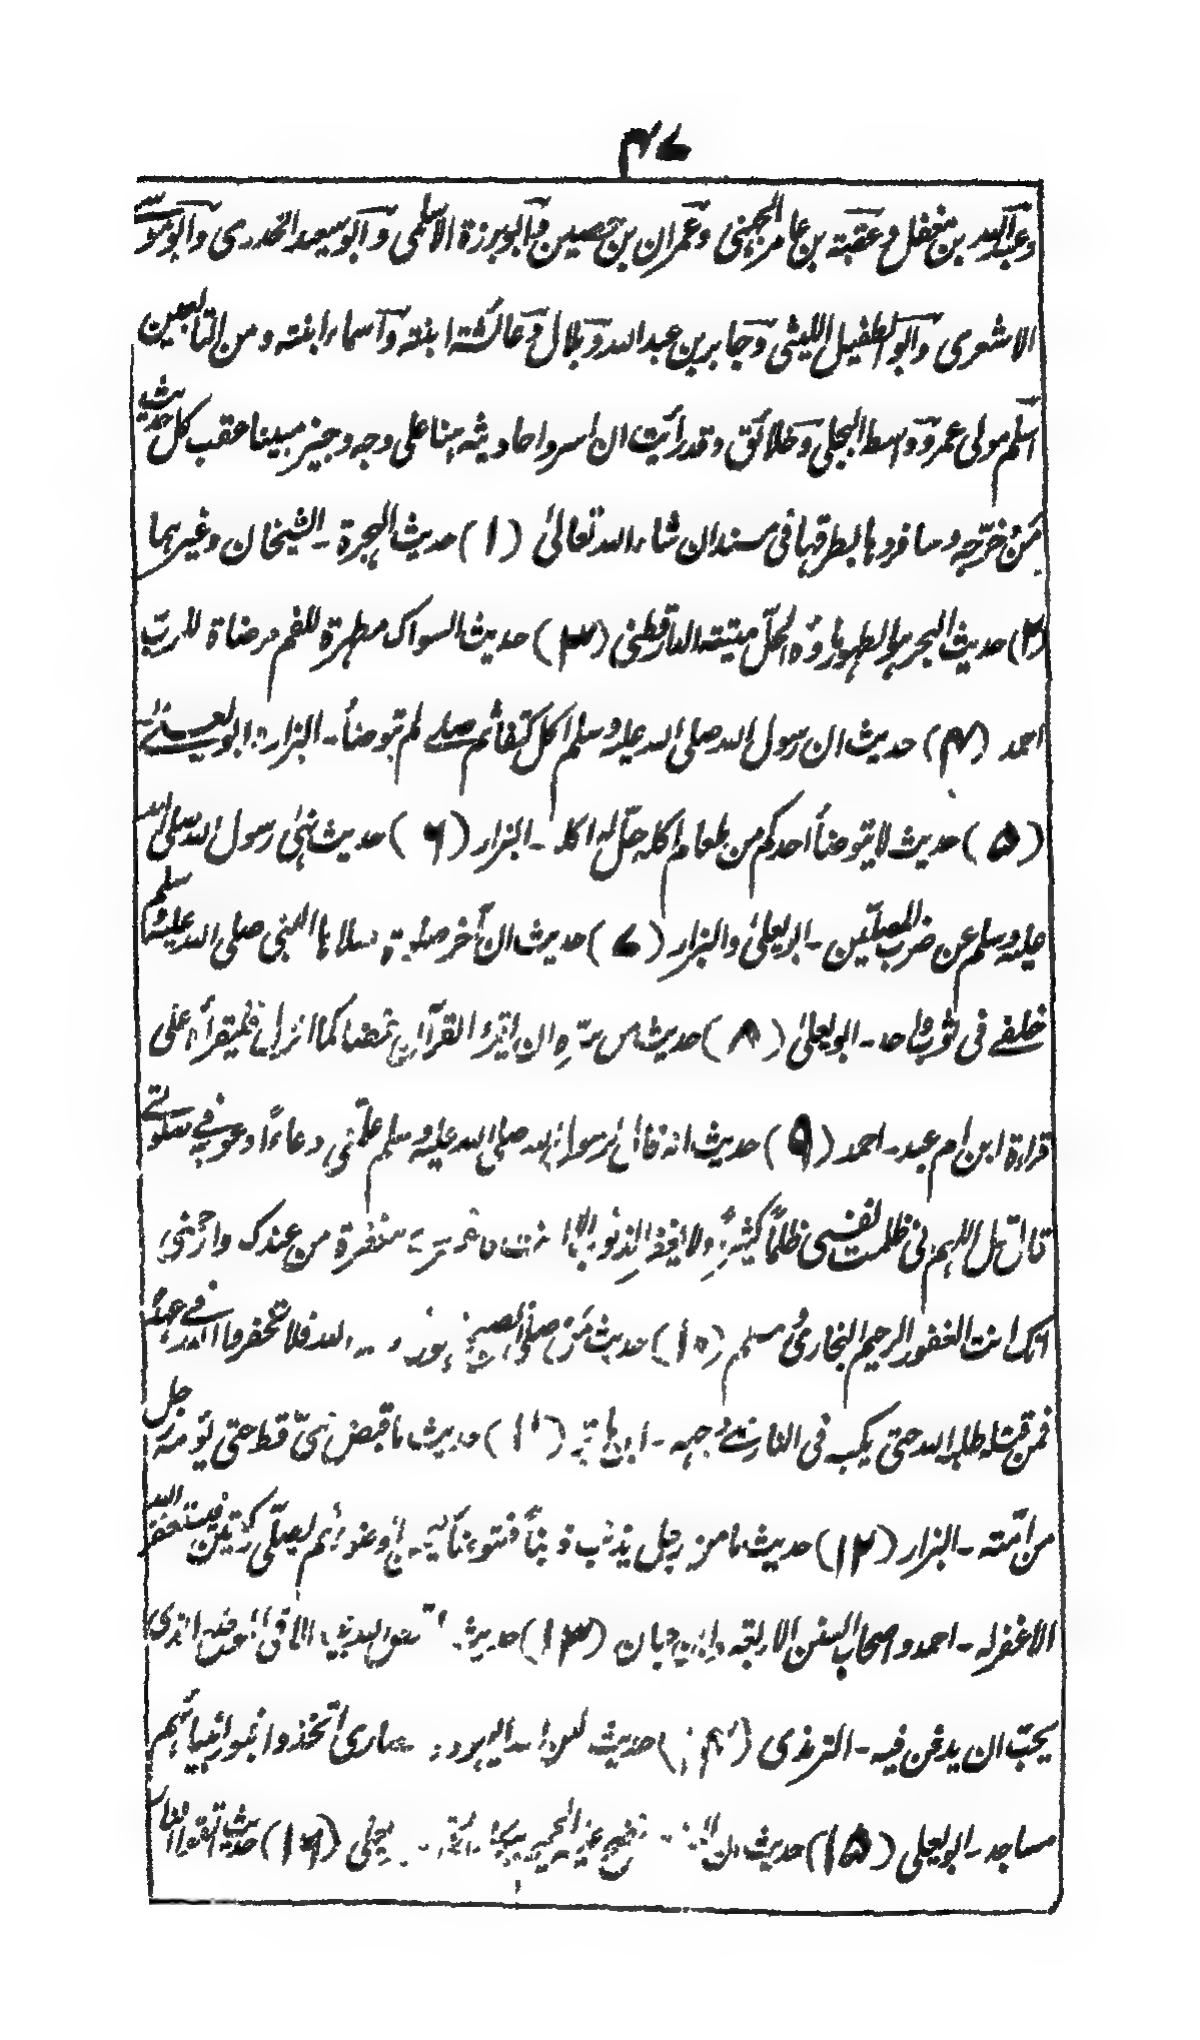 ۴۷
وعبد الله بن مغفل وعقبة بن عامر الجهنی وعمران بن حصین وابو برزة الاسلمی وابو سعید الخدری وابو موسی
الاشعری وابو الطفیل اللیثی وجابر بن عبد الله وبلال وعائشة ابنته واسماء ابنته ومن التابعین
اسلم مولی عمر وواسط البجلی وخلائق وقد رأیت ان اسرد احادیثه هنا علی وجه وجیز مبینا عقب کل حدیث
من خرّجه وسافردها بطرقها فی مسند ان شاء الله تعالیٰ (۱) حدیث الهجرة ـ الشیخان وغیرهما
(۲) حدیث البحر هو الطهور ماؤه الحلّ میتته الدارقطنی (۳) حدیث السواک مطهرة للفم مرضاة للربّ
احمد (۴) حدیث ان رسول الله صلی الله علیه وسلم اکل کتفا ثم صلے لم یتوضأ ـ البزار، ابو یعلےٰ
(۵) حدیث لا یتوضأ احدکم من طعام اکله حلّ له اکله ـ البزار (۶) حدیث نهیٰ رسول الله صلی الله
علیه وسلم عن ضرب المصلّین ـ ابو یعلیٰ والبزار (۷) حدیث ان آخر صلوة صلاها النبی صلی الله علیه وسلم
خلفے فی ثوب واحد ـ ابو یعلیٰ (۸) حدیث من سرّه ان یقرء القرآن غضا کما انزل فلیقرأه علی
قراءة ابن ام عبد ـ احمد (۹) حدیث انه قال لرسول الله صلی الله علیه وسلم علّمنی دعاءً ادعو به فی صلوتے
قال قل اللهم انی ظلمت نفسی ظلمًا کثیرًا ولا یغفر الذنوب الا انت فاغفر لی مغفرة من عندک وارحمنی
انک انت الغفور الرحیم البخاری ومسلم (۱۰) حدیث من صلّی الصبح فهو فی ذمة الله فلا تخفروا الله فے عهده
فمن قتله طلبه الله حتی یکبه فی النار علی وجهه ـ ابن ماجة (۱۱) حدیث ما قبض نبیّ قط حتی یؤمه رجل
من امّته ـ البزار (۱۲) حدیث ما من رجل یذنب ذنبًا فیتوضأ فیحسن الوضوء ثم یصلّی رکعتین فیستغفر الله
الا غفر له ـ احمد واصحاب السنن الاربعة وابن حبان (۱۳) حدیث ما قبض الله نبیا الا فی الموضع الذی
یحبّ ان یدفن فیه ـ الترمذی (۱۴) حدیث لعن الله الیهود والنصاری اتخذوا قبور انبیائهم
مساجد ـ ابو یعلی (۱۵) حدیث ان المیت ینضح علیه الحمیم ببکاء الحی ـ ابو یعلی (۱۶) حدیث اتقوا النار